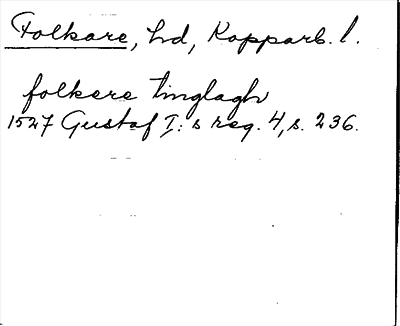 Folkare, hd, Kopparb. l.
folkere tinglagh
1527 Gustaf I:s reg. 4, s. 236.